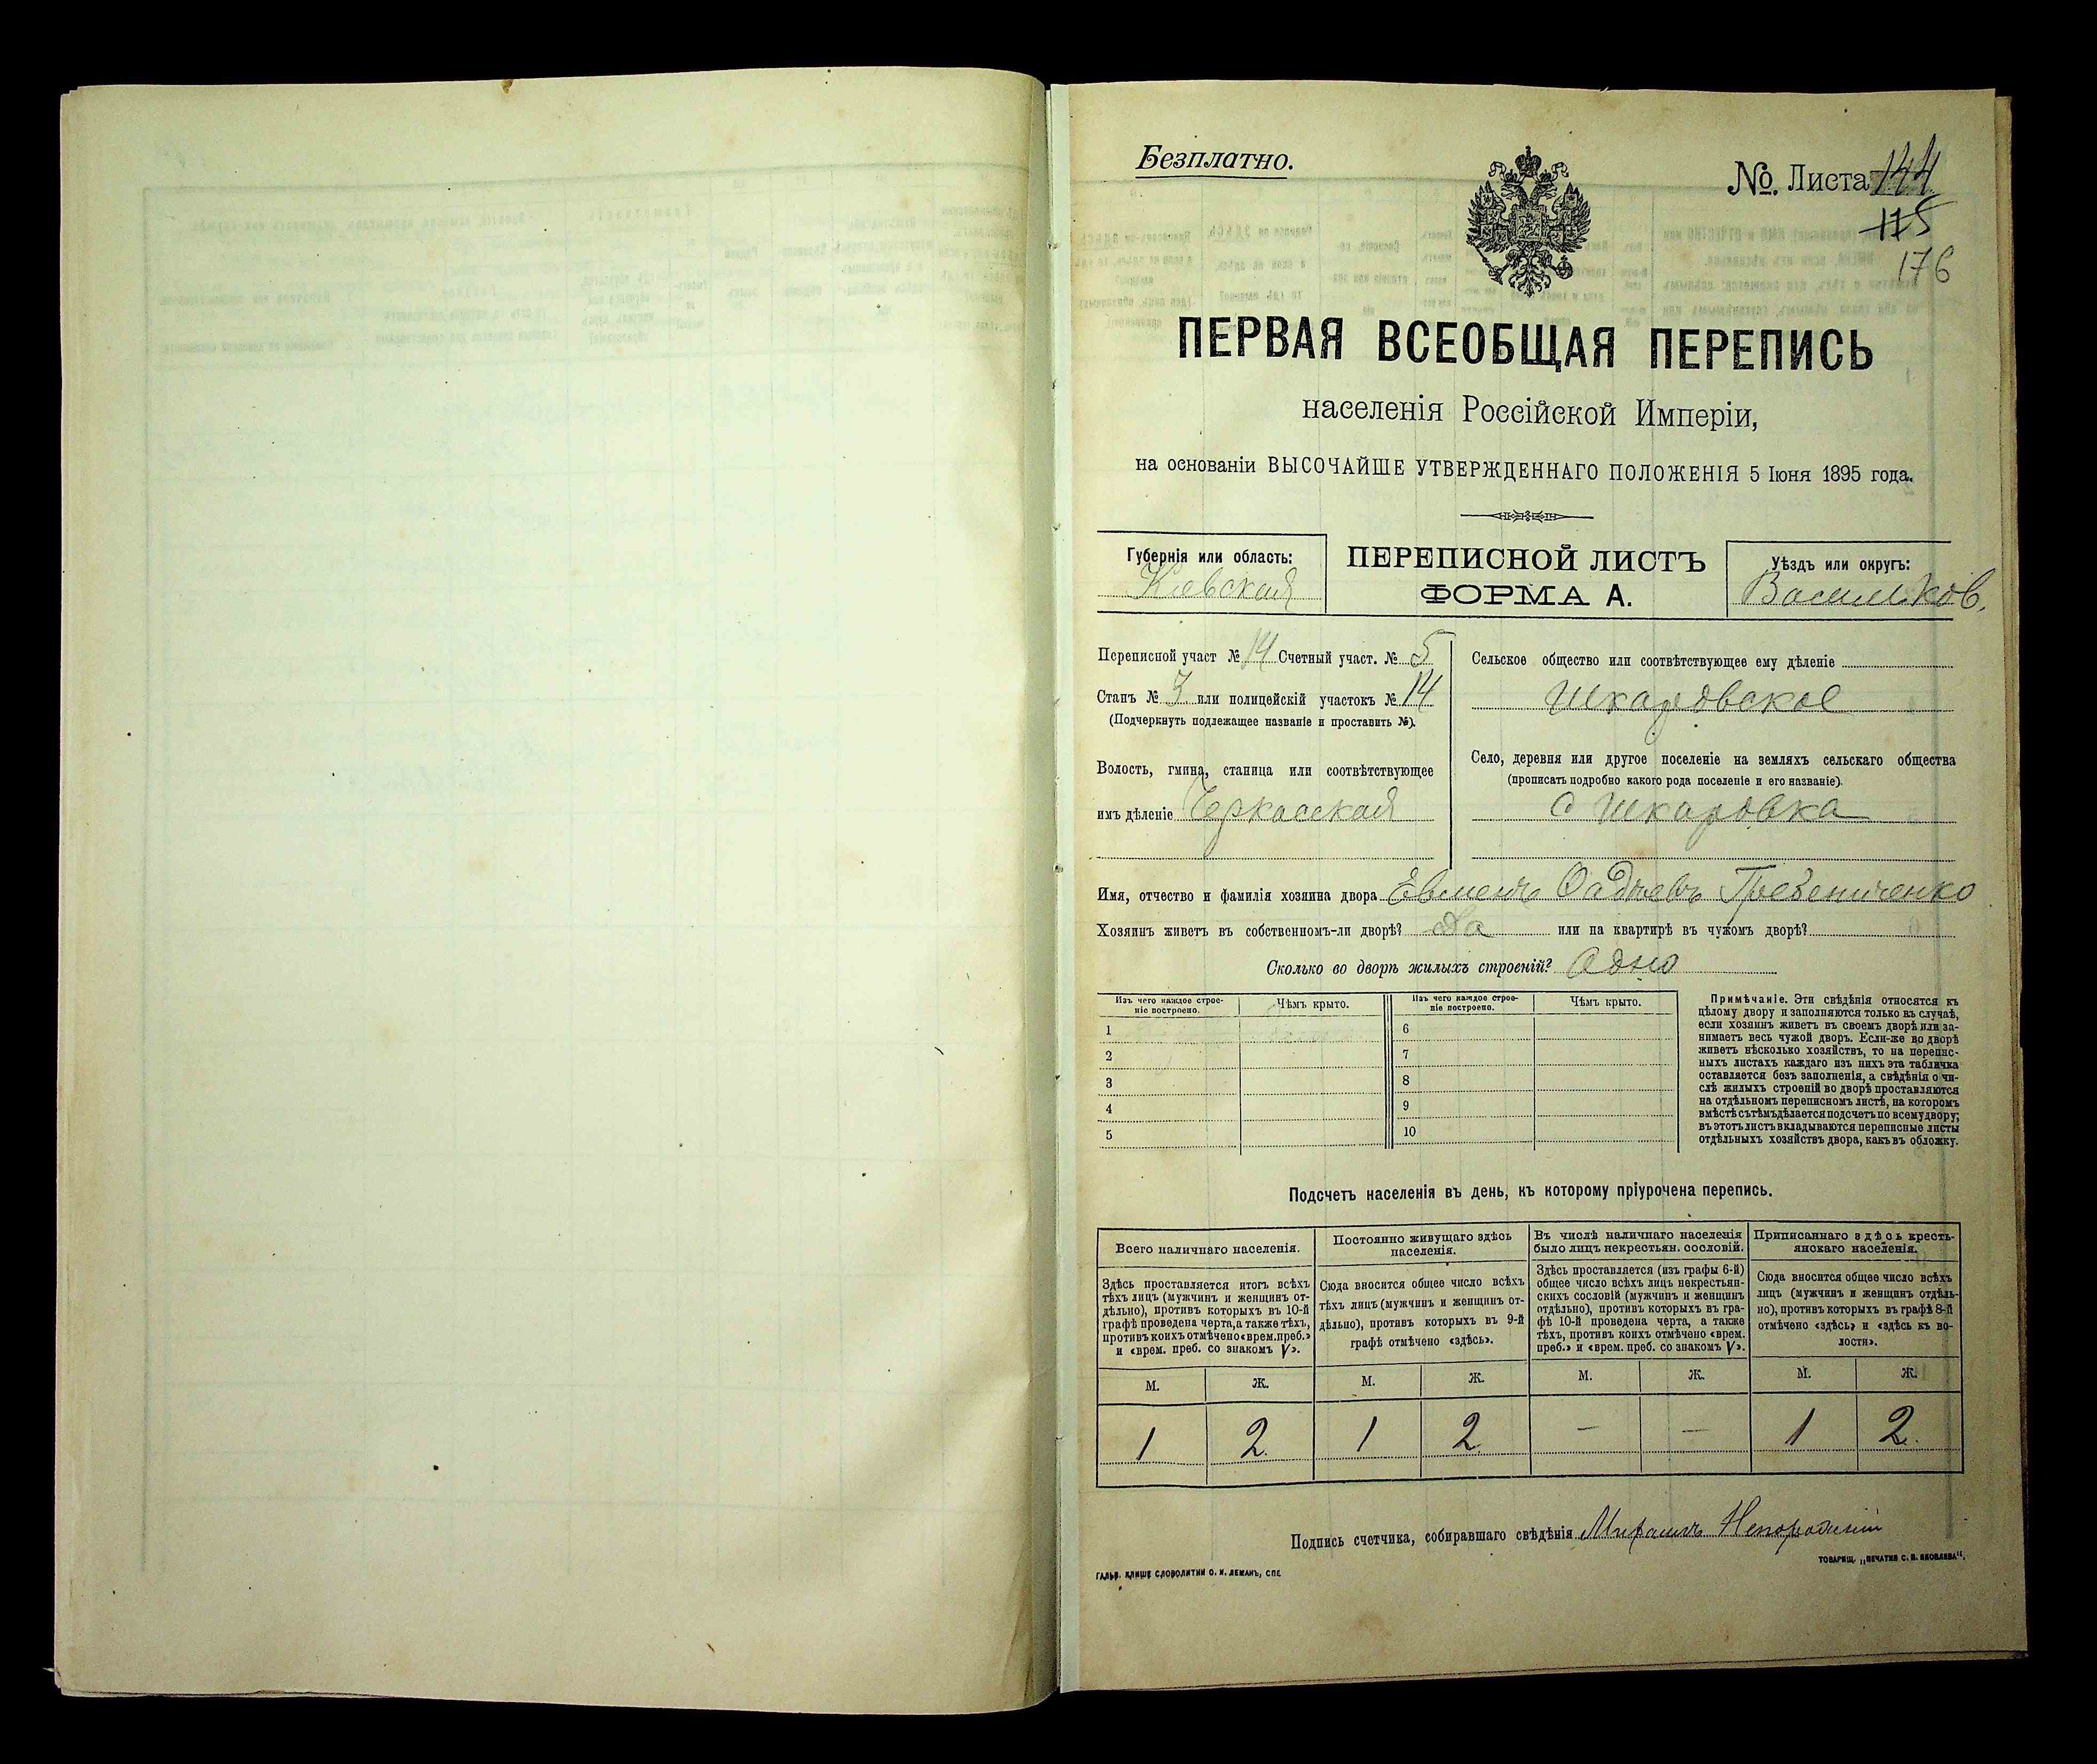 Безплатно.
№. Листа 144
175
176
ПЕРВАЯ ВСЕОБЩАЯ ПЕРЕПИСЬ
населенія Россійской Имперіи,
на основаніи ВЫСОЧАЙШЕ УТВЕРЖДЕННАГО ПОЛОЖЕНІЯ 5 Іюня 1895 года.
Губернія или область:
Кіевская
ПЕРЕПИСНОЙ ЛИСТЪ
ФОРМА А.
Уѣздъ или округъ:
Васильков.
Переписной участ № 14 Счетный участ. № 5
Станъ № 3 или полицейскій участокъ № 14
(Подчеркнуть подлежащее названіе и проставить №).
Волость, гмина, станица или соотвѣтствующее
имъ дѣленіе Черкасская
Сельское общество или соотвѣтствующее ему дѣленіе
Шкаровское
Село, деревня или другое поселеніе на земляхъ сельскаго общества
(прописать подробно какого рода поселеніе и его названіе).
с Шкаровка
Имя, отчество и фамилія хозяина двора Евменъ Фадѣевъ Гребениченко
Хозяинъ живетъ въ собственномъ-ли дворѣ? Да или на квартирѣ въ чужомъ дворѣ?
Сколько во дворѣ жилыхъ строеній? Одно
Изъ чего каждое строе-
ніе построено.
Чѣмъ крыто.
Изъ чего каждое строе-
ніе построено.
Чѣмъ крыто.
1 6
2 7
3 8
4 9
5 10
Примѣчаніе. Эти свѣдѣнія относятся къ
цѣлому двору и заполняются только въ случаѣ,
если хозяинъ живетъ въ своемъ дворѣ или за-
нимаетъ весь чужой дворъ. Если-же во дворѣ
живетъ нѣсколько хозяйствъ, то на перепис-
ныхъ листахъ каждаго изъ нихъ эта табличка
оставляется безъ заполненія, а свѣдѣнія о чи-
слѣ жилыхъ строеній во дворѣ проставляются
на отдѣльномъ переписномъ листѣ, на которомъ
вмѣстѣ съ тѣмъ дѣлается подсчетъ по всему двору;
въ этотъ листъ вкладываются переписные листы
отдѣльныхъ хозяйствъ двора, какъ въ обложку.
Подсчетъ населенія въ день, къ которому пріурочена перепись.
Всего наличнаго населенія.
Здѣсь проставляется итогъ всѣхъ
тѣхъ лицъ (мужчинъ и женщинъ от-
дѣльно), противъ которыхъ въ 10-й
графѣ проведена черта, а также тѣхъ,
противъ коихъ отмѣчено «врем. преб.»
и «врем. преб. со знакомъ V».
Постоянно живущаго здѣсь
населенія.
Сюда вносится общее число всѣхъ
тѣхъ лицъ (мужчинъ и женщинъ от-
дѣльно), противъ которыхъ въ 9-й
графѣ отмѣчено «здѣсь».
Въ числѣ наличнаго населенія
было лицъ некрестьян. сословій.
Здѣсь проставляется (изъ графы 6-й)
общее число всѣхъ лицъ некрестьян-
скихъ сословій (мужчинъ и женщинъ
отдѣльно), противъ которыхъ въ гра-
фѣ 10-й проведена черта, а также
тѣхъ, противъ коихъ отмѣчено «врем.
преб.» и «врем. преб. со знакомъ V».
Приписаннаго здѣсь кресть-
янскаго населенія.
Сюда вносится общее число всѣхъ
лицъ (мужчинъ и женщинъ отдѣль-
но), противъ которыхъ въ графѣ 8-й
отмѣчено «здѣсь» и «здѣсь къ во-
лости».
М. Ж. М. Ж. М. Ж. М. Ж.
1 2 1 2 — — 1 2
Подпись счетчика, собиравшаго свѣдѣнія
ГАЛЬВ. КЛИШЕ СЛОВОЛИТНИ О. И. ЛЕМАНЪ, СПБ.
ТОВАРИЩ. „ПЕЧАТНЯ С. П. ЯКОВЛЕВА“.